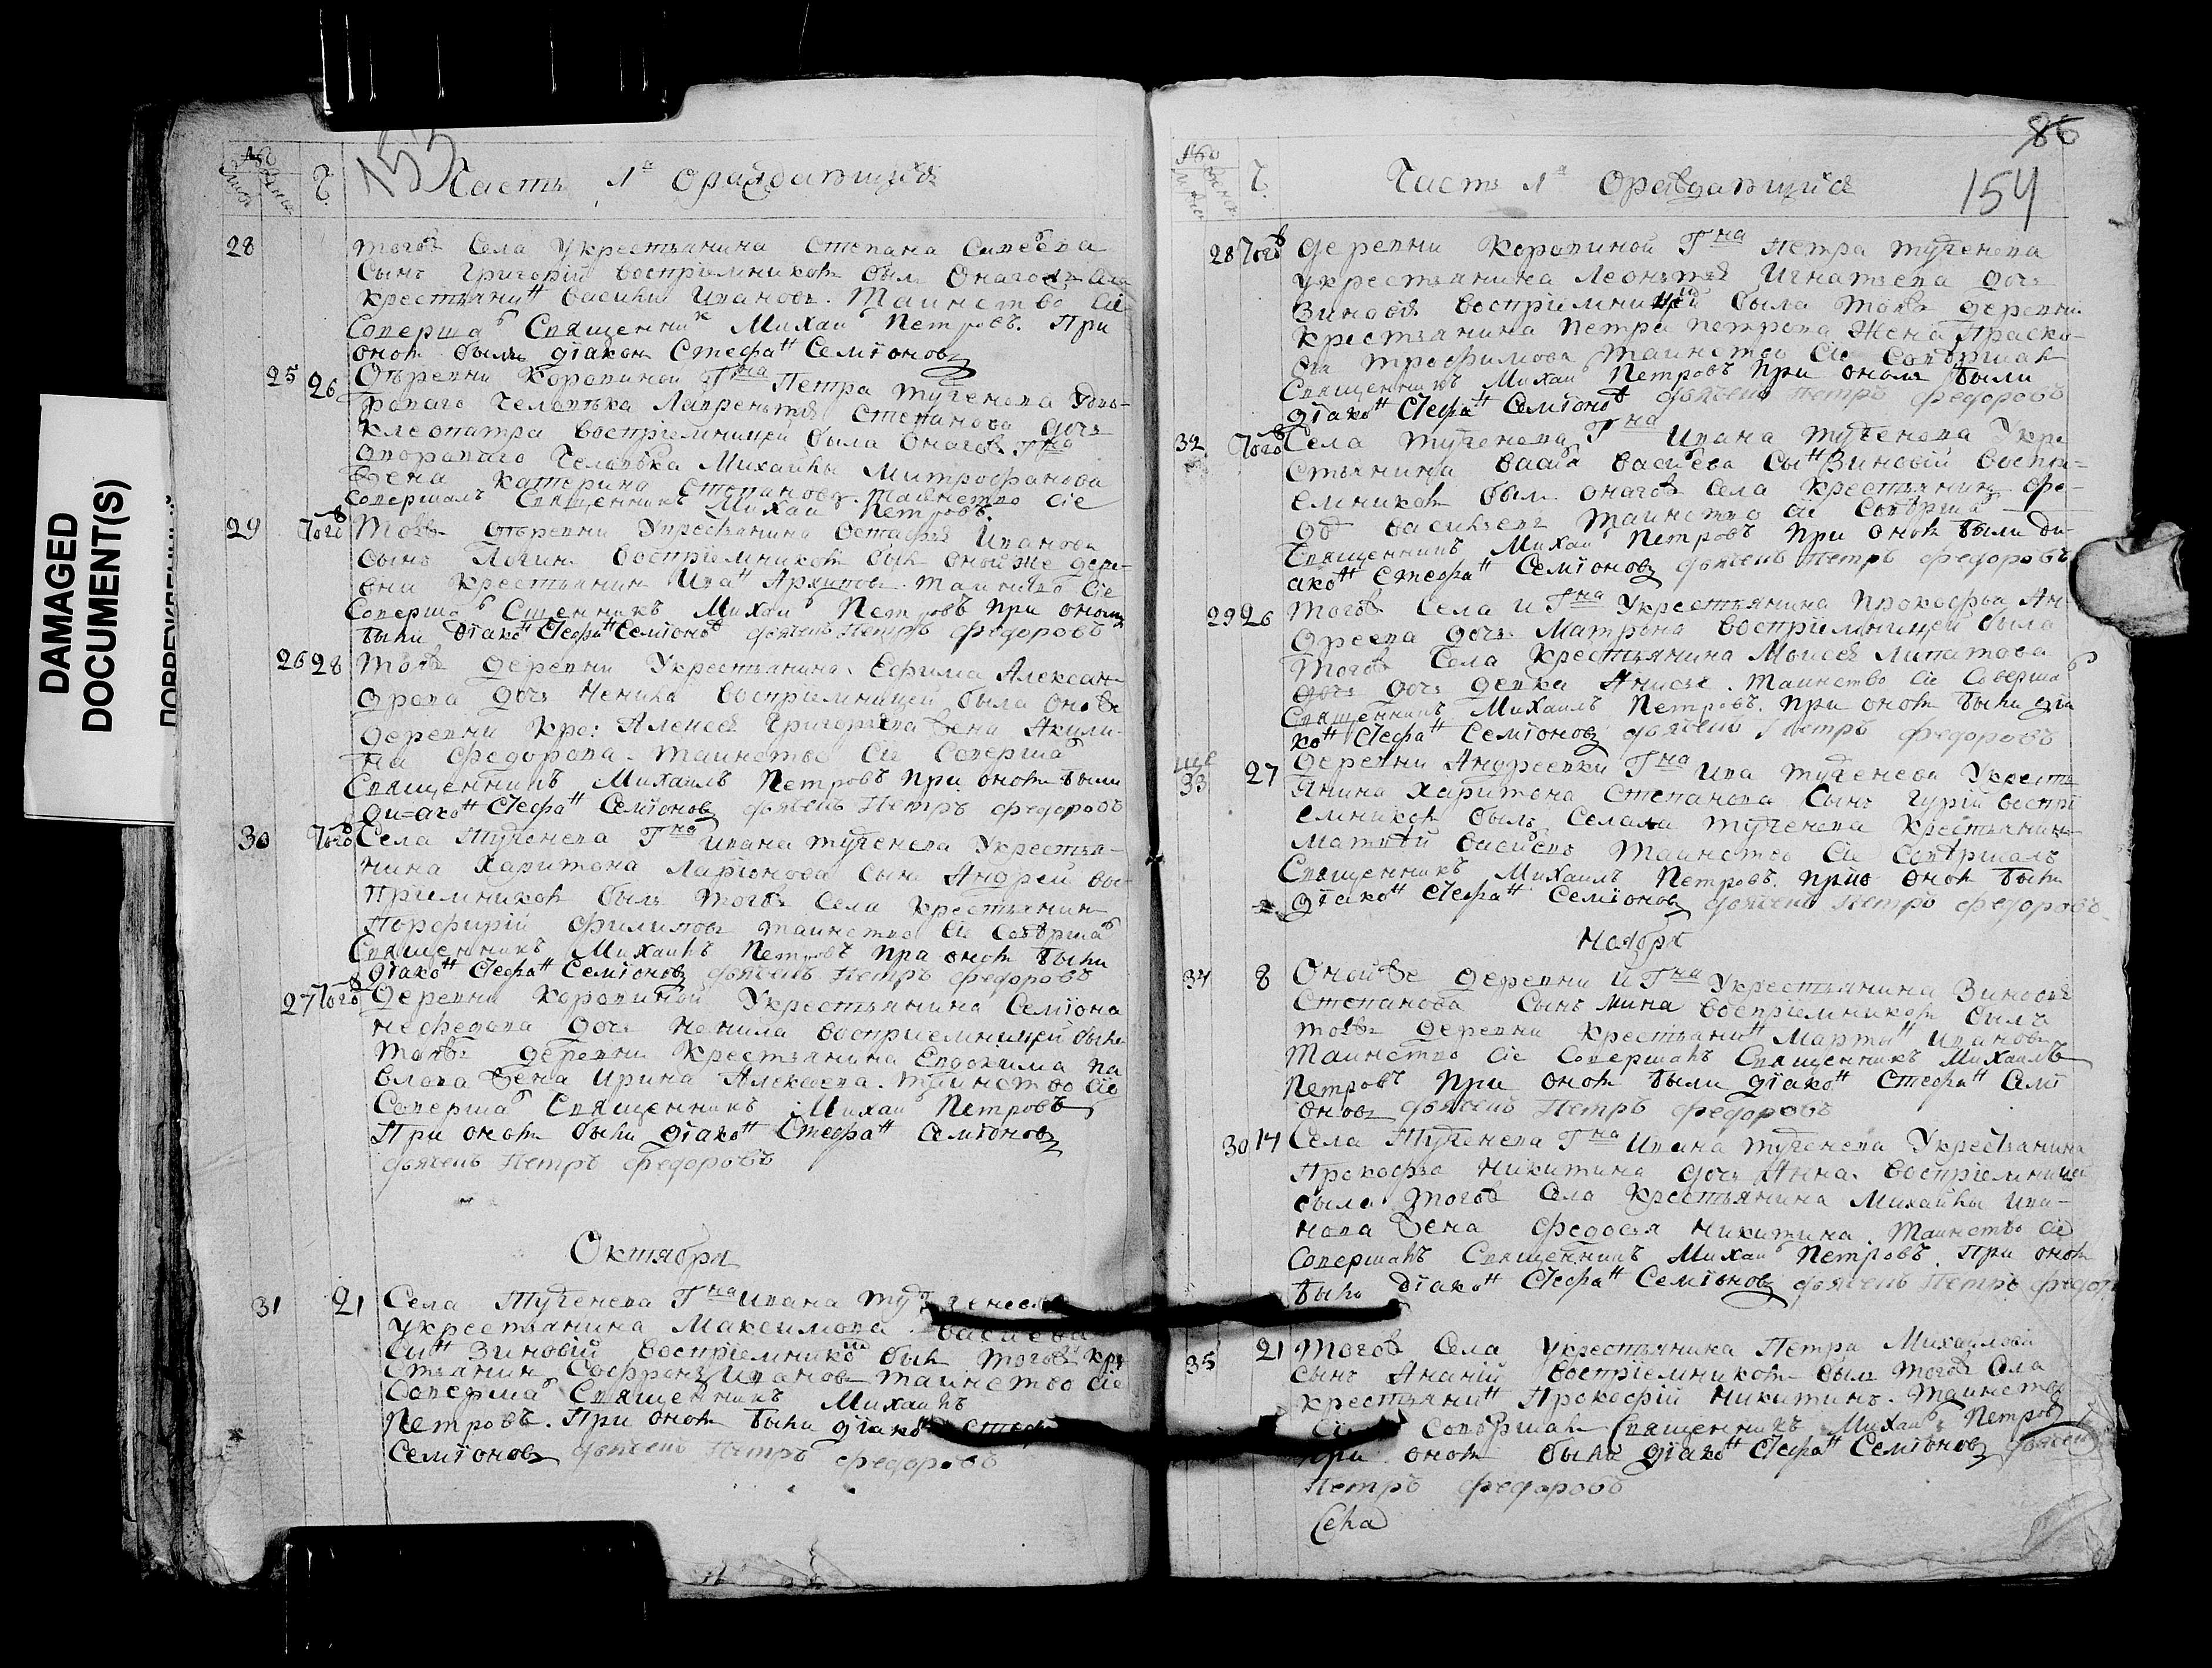 DAMAGED
DOCUMENT(S)
153
Часть 1я ораждающихся
28 тогож Села Укрестьянина Степана Силаева
Сынъ Григорий восприемником был Оногож Села
крестьянинъ Василий Иванов. Таинство Сiе
Совершал Священник Михаил Петровъ. При
оном были дiакон Стефан Семiонов
25 26 Деревни Коровиной Гна Петра Тургенева двo-
роваго Человека Лаврентия Степанова дочь
Клеопатра восприемницей была Оногож Гна
дворового Человека Михайлы Митрофанова
Жена Катерина Степанова. Таинство Сiе
совершалъ Священникъ Михаил Петровъ.
29 Того Тойж деревни Укрестьянина Остафья Иванова
сынъ Логин восприемником был оной же дере-
вни Крестьянин Иван Архипов. Таинство Сiе
Совершал Сщенникъ Михаил Петровъ При оном
были дiакон Стефан Семiонов дьячекъ Петръ Федоровъ
26 28 Тойж деревни Укрестьянина Ефима Алексан-
дрова дочь Ненила восприемницей была онойж
деревни Кре: Алексея Григорьева Жена Акили-
на Федорова. Таинство Сiе Совершал
Священникъ Михаилъ Петровъ При оном были
ди=акон Стефан Семiонов дьячекъ Петръ Федоровъ
30 Того Села Тургенева Гна Ивана Тургенева Укрестья-
нина Харитона Ларiонова Сын Андрей вос-
приемником былъ тогож Села Крестьянин
Порфирiй Филипов Таинство Сiе Совершал
Священникъ Михаилъ Петровъ При оном были
дiакон Стефан Семiонов дьячекъ Петръ Федоровъ
27 Того Деревни Коровиной Укрестьянина Семiона
Нефедова дочь Ненила восприемницей была
Тойж деревни Крестьянина Евдокима Па
влова Жена Ирина Алексеева. Таинство Сiе
Совершал Священникъ Михаил Петровъ
При оном были дiакон Стефан Семiонов
дьячекъ Петръ Федоровъ
Октября
31 21 Села Тургенева Гна Ивана Тургенева
Укрестьянина Максимова Василева
Сын Зиновiй восприемником был тогож кре
стьянин Софрон Иванов Таинство Сiе
Совершал Священникъ Михаилъ
Петровъ. При оном были дiакон Стефан
Семiонов дьячекъ Петръ Федоровъ
86
154
Часть 1я ораждающихся
28 Того Деревни Коровиной Гна Петра Тургенева
Укрестьянина Леонтия Игнатьева дочь
Зиновiя восприемницей была Тойж деревни
Крестьянина Петра Петрова Жена Праско-
вья Трофимова Таинство Сiе Совершал
Священникъ Михаил Петровъ При оном были
дiакон Стефан Семiонов дьячекъ Петръ Федоровъ
32 Того Села Тургенева Гна Ивана Тургенева Укре-
стьянина Василя Василева Сын Зиновiй воспри-
емником был оногож Села Крестьянин Фе-
дор Васильев Таинство Сiе Совершал
Священникъ Михаил Петровъ При оном были ди-
акон Стефан Семiонов дьячекъ Петръ Федоровъ
29 26 Тогож Села и Гна Укрестьянина Прокофья Ан-
дреева дочь Матрона восприемницей была
Тогож Села Крестьянина Моисея Липатова
дочь дочь девка Анисья. Таинство Сiе Совершал
Священникъ Михаилъ Петровъ. При оном были дiа
кон Стефан Семiонов дьячекъ Петръ Федоровъ
33 27 Деревни Андреевки Гна Ива Тургенева Укресть
янина Харитона Степанова Сынъ Гурiй воспрi
емником былъ Села Тургенева Крестьянин
Матвей Василев Таинство Сiе Совершалъ
Священникъ Михаилъ Петровъ. При оном были
дiакон Стефан Семiонов дьячекъ Петръ Федоровъ
Ноября
34 8 Онойже деревни и Гна Укрестьянина Зиновия
Степанова Сынъ Мина восприемником былъ
Тойж деревни Крестьянин Мартин Иванов
Таинство Сiе Совершалъ Священникъ Михаилъ
Петровъ При оном были дiакон Стефан Семi
онов дьячекъ Петръ Федоровъ
30 14 Села Тургенева Гна Ивана Тургенева Укрестьянина
Прокофья Никитина дочь Анна. восприемницей
была Тогож Села Крестьянина Михайлы Ива-
нова Жена Федосья Никитина. Таинство Сiе
Совершалъ Священникъ Михаил Петровъ. При оном
были дiакон Стефан Семiонов дьячекъ Петръ Федор
35 21 Тогож Села Укрестьянина Петра Михайлова
Сынъ Ананiй восприемником былъ Тогож Села
Крестьянин Прокофiй Никитинъ. Таинство
Сiе Совершал Священникъ Михаил Петров
При оном были дiакон Стефан Семiонов дьячекъ
Петръ Федоровъ
Села